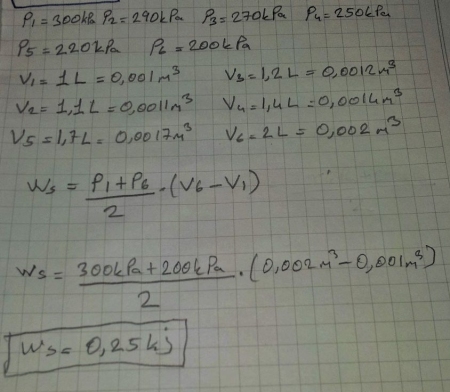 P1=300kPa P2=290kPa P3=270kPa P4=250kPa
P5=220kPa P6=200kPa
V1=1L=0,001m³ V3=1,2L=0,0012m³
V2=1,1L=0,0011m³ V4=1,4L=0,0014m³
V5=1,7L=0,0017m³ V6=2L=0,002m³
Ws = (P1+P6)/2 . (V6-V1)
Ws = (300kPa+200kPa)/2 . (0,002m³-0,001m³)
Ws = 0,25kj